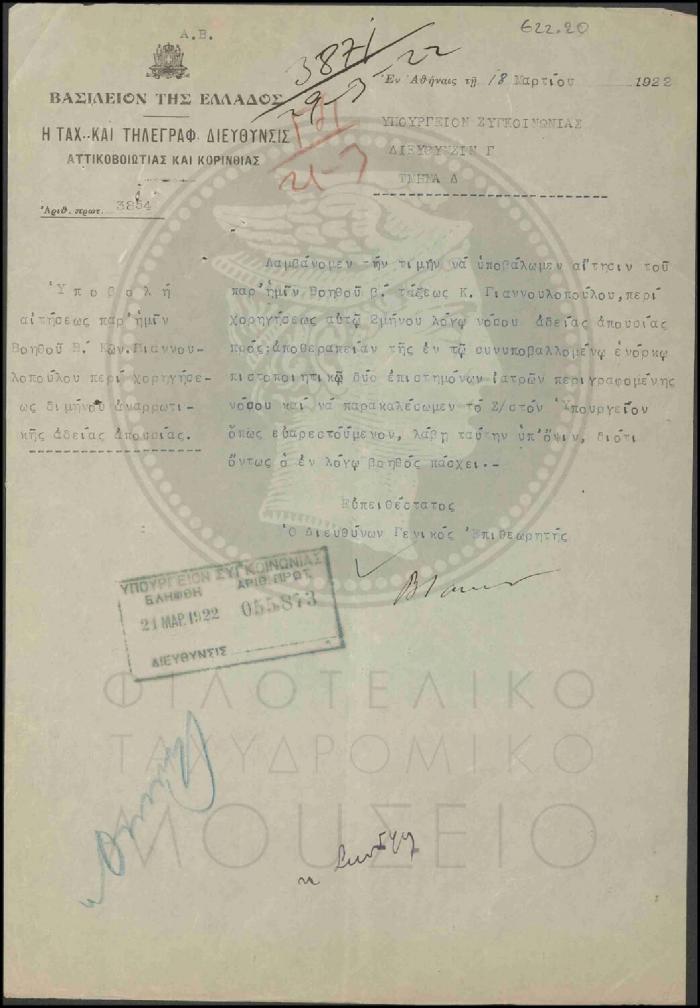 622.20
Α.Β.
3871
29-3-22
ΒΑΣΙΛΕΙΟΝ ΤΗΣ ΕΛΛΑΔΟΣ
Η ΤΑΧ. ΚΑΙ ΤΗΛΕΓΡΑΦ. ΔΙΕΥΘΥΝΣΙΣ
ΑΤΤΙΚΟΒΟΙΩΤΙΑΣ ΚΑΙ ΚΟΡΙΝΘΙΑΣ
Ἀριθ. πρωτ. 3854
21-3
Ἐν Ἀθήναις τῇ 18 Μαρτίου 1922
ΥΠΟΥΡΓΕΙΟΝ ΣΥΓΚΟΙΝΩΝΙΑΣ
ΔΙΕΥΘΥΝΣΙΝ Γ
ΤΜΗΜΑ Δ
Ὑποβολή
αἰτήσεως παρ'ἡμῖν
Βοηθοῦ Β.' Κων.Γιαννου-
λοπούλου περί χορηγήσε-
ως διμήνου ἀναρρωτι-
κῆς ἀδείας ἀπουσίας.
Λαμβάνομεν τήν τιμήν νά ὑποβάλωμεν αἴτησιν τοῦ
παρ'ἡμῖν Βοηθοῦ β.' τάξεως Κ. Γιαννουλοπούλου, περί
χορηγήσεως αὐτῷ 2μήνου λόγῳ νόσου ἀδείας ἀπουσίας
πρός:ἀποθεραπείαν τῆς ἐν τῷ συνυποβαλλομένῳ ἐνόρκῳ
πιστοποιητικῷ δύο ἐπιστημόνων ἰατρῶν περιγραφομένης
νόσου καί νά παρακαλέσωμεν τό Σ/στόν Ὑπουργεῖον
ὅπως εὐαρεστούμενον, λάβῃ ταύτην ὑπ'ὄψιν, διότι
ὄντως ὁ ἐν λόγῳ βοηθός πάσχει.-
Εὐπειθέστατος
Ὁ Διευθύνων Γενικός Ἐπιθεωρητής
ΥΠΟΥΡΓΕΙΟΝ ΣΥΓΚΟΙΝΩΝΙΑΣ
ΕΛΗΦΘΗ ΑΡΙΘ. ΠΡΩΤ.
21 ΜΑΡ. 1922 055873
ΔΙΕΥΘΥΝΣΙΣ
ΦΙΛΟΤΕΛΙΚΟ
ΤΑΧΥΔΡΟΜΙΚΟ
ΜΟΥΣΕΙΟ